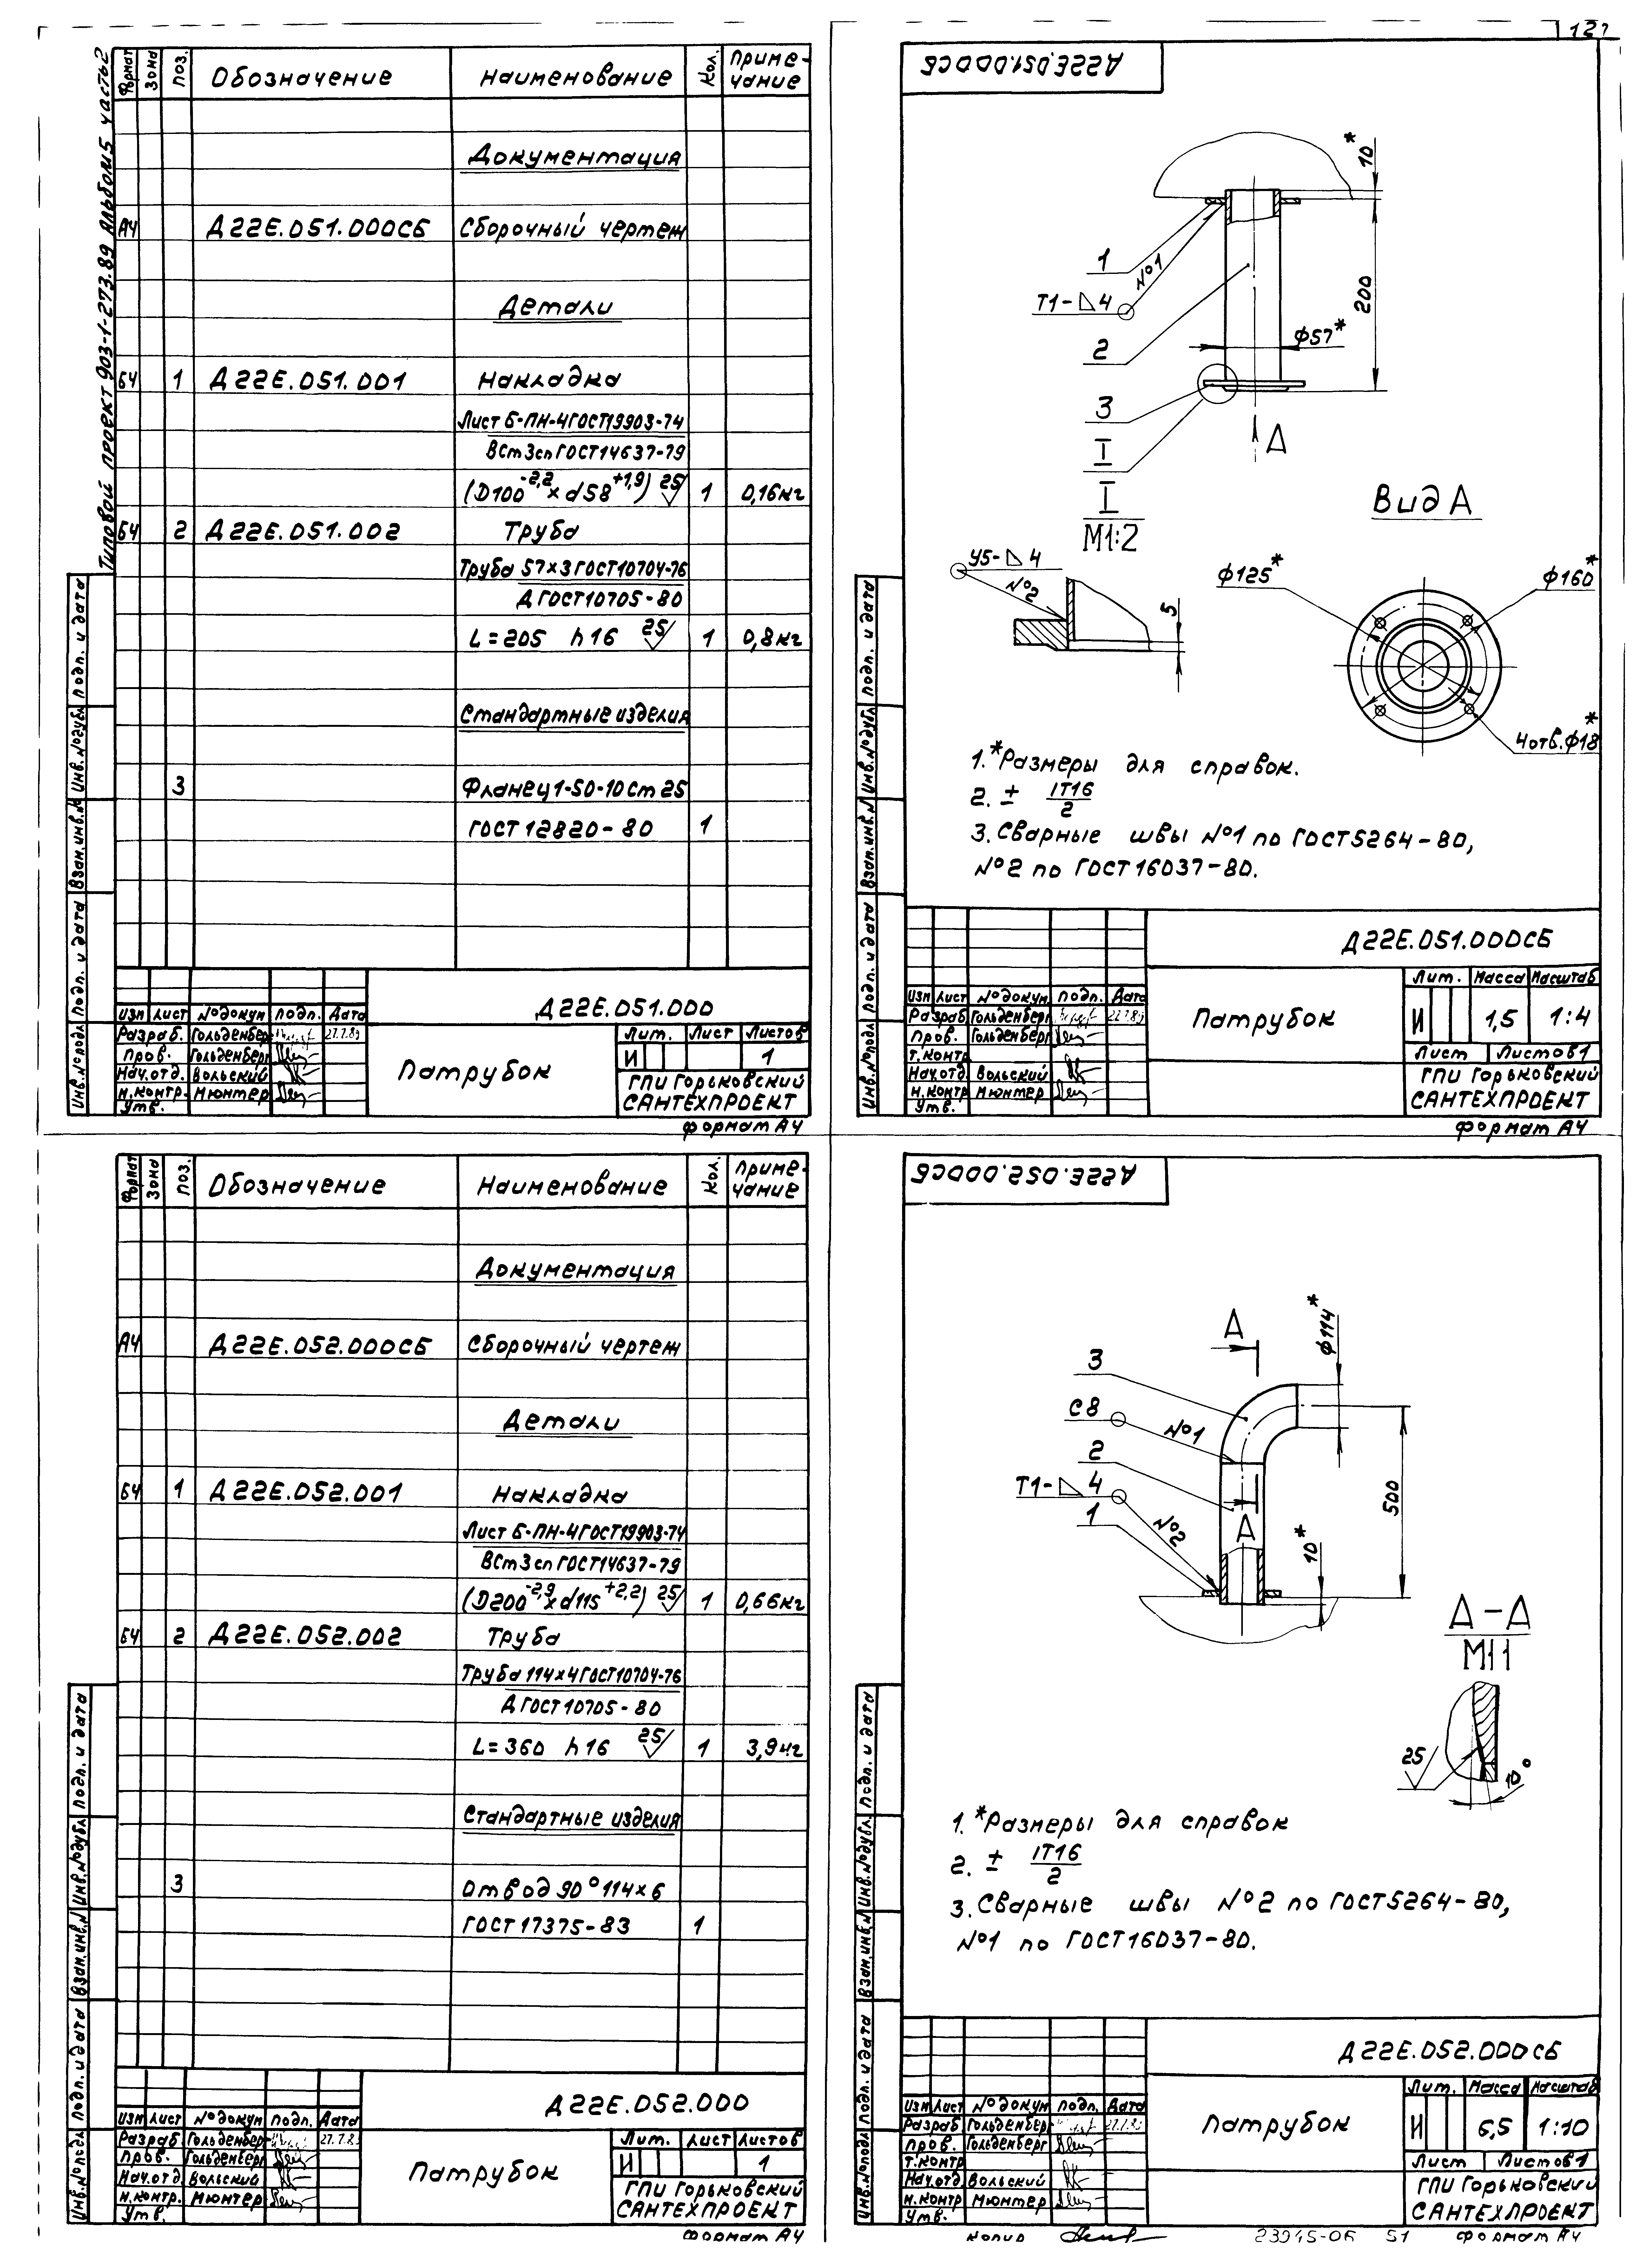 Типовой проект 903-1-273.89 Альбом 5 часть 2
Формат Зона Поз. Обозначение Наименование Кол. Приме-
чание
Документация
А4 Д22Е.051.000СБ Сборочный чертеж
Детали
БЧ 1 Д22Е.051.001 Накладка
Лист Б-ПН-4 ГОСТ19903-74
ВСт3сп ГОСТ14637-79
(D100-2,2 x d58+1,9) 25 1 0,16кг
БЧ 2 Д22Е.051.002 Труба
Труба 57×3 ГОСТ10704-76
Д ГОСТ10705-80
L=205 h16 25 1 0,8кг
Стандартные изделия
3 Фланец 1-50-10 Ст 25
ГОСТ 12820-80 1
Подп. и дата
Инв.№дубл.
Взам.инв.№
Подп. и дата
Инв.№подл.
Д22Е.051.000
Изм Лист №докум Подп. Дата
Разраб. Гольденберг 27.7.89
Пров. Гольденберг
Нач.отд. Вольский
Н.контр. Мюнтер
Утв.
Патрубок
Лит. Лист Листов
И 1
ГПИ Горьковский
САНТЕХПРОЕКТ
Формат А4
Д22Е.051.000СБ
10*
1
№1
Т1-⊿4
200
2
ϕ57*
3
I
А
I
М1:2
Вид А
У5-⊿4
№2
5
ϕ125*
ϕ160*
4отв.ϕ18*
1.*Размеры для справок.
2. ± IT16/2
3. Сварные швы №1 по ГОСТ5264-80,
№2 по ГОСТ16037-80.
Подп. и дата
Инв.№дубл.
Взам.инв.№
Подп. и дата
Инв.№подл.
Д22Е.051.000СБ
Изм Лист №докум Подп. Дата
Разраб Гольденберг 27.7.89
Пров. Гольденберг
Т.контр
Нач.отд. Вольский
Н.контр Мюнтер
Утв.
Патрубок
Лит. Масса Масштаб
И 1,5 1:4
Лист Листов 1
ГПИ Горьковский
САНТЕХПРОЕКТ
Формат А4
Формат Зона Поз. Обозначение Наименование Кол. Приме-
чание
Документация
А4 Д22Е.052.000СБ Сборочный чертеж
Детали
БЧ 1 Д22Е.052.001 Накладка
Лист Б-ПН-4 ГОСТ19903-74
ВСт3сп ГОСТ14637-79
(D200-2,9 x d115+2,2) 25 1 0,66кг
БЧ 2 Д22Е.052.002 Труба
Труба 114×4 ГОСТ10704-76
Д ГОСТ10705-80
L=360 h16 25 1 3,9кг
Стандартные изделия
3 Отвод 90°114×6
ГОСТ 17375-83 1
Подп. и дата
Инв.№дубл.
Взам.инв.№
Подп. и дата
Инв.№подл.
Д22Е.052.000
Изм Лист №докум Подп. Дата
Разраб Гольденберг 27.7.89
Пров. Гольденберг
Нач.отд Вольский
Н.контр. Мюнтер
Утв.
Патрубок
Лит. Лист Листов
И 1
ГПИ Горьковский
САНТЕХПРОЕКТ
Формат А4
Д22Е.052.000СБ
А
ϕ114*
3
С8
№1
2
Т1-⊿4
1
№2
А
500
10*
А-А
М1 1
25
10°
1.*Размеры для справок
2. ± IT16/2
3. Сварные швы №2 по ГОСТ5264-80,
№1 по ГОСТ16037-80.
Подп. и дата
Инв.№дубл.
Взам.инв.№
Подп. и дата
Инв.№подл.
Д22Е.052.000СБ
Изм Лист №докум Подп. Дата
Разраб Гольденберг 27.7.89
Пров. Гольденберг
Т.контр
Нач.отд. Вольский
Н.контр Мюнтер
Утв.
Патрубок
Лит. Масса Масштаб
И 6,5 1:10
Лист Листов 1
ГПИ Горьковский
САНТЕХПРОЕКТ
Копир 23945-06 51 Формат А4